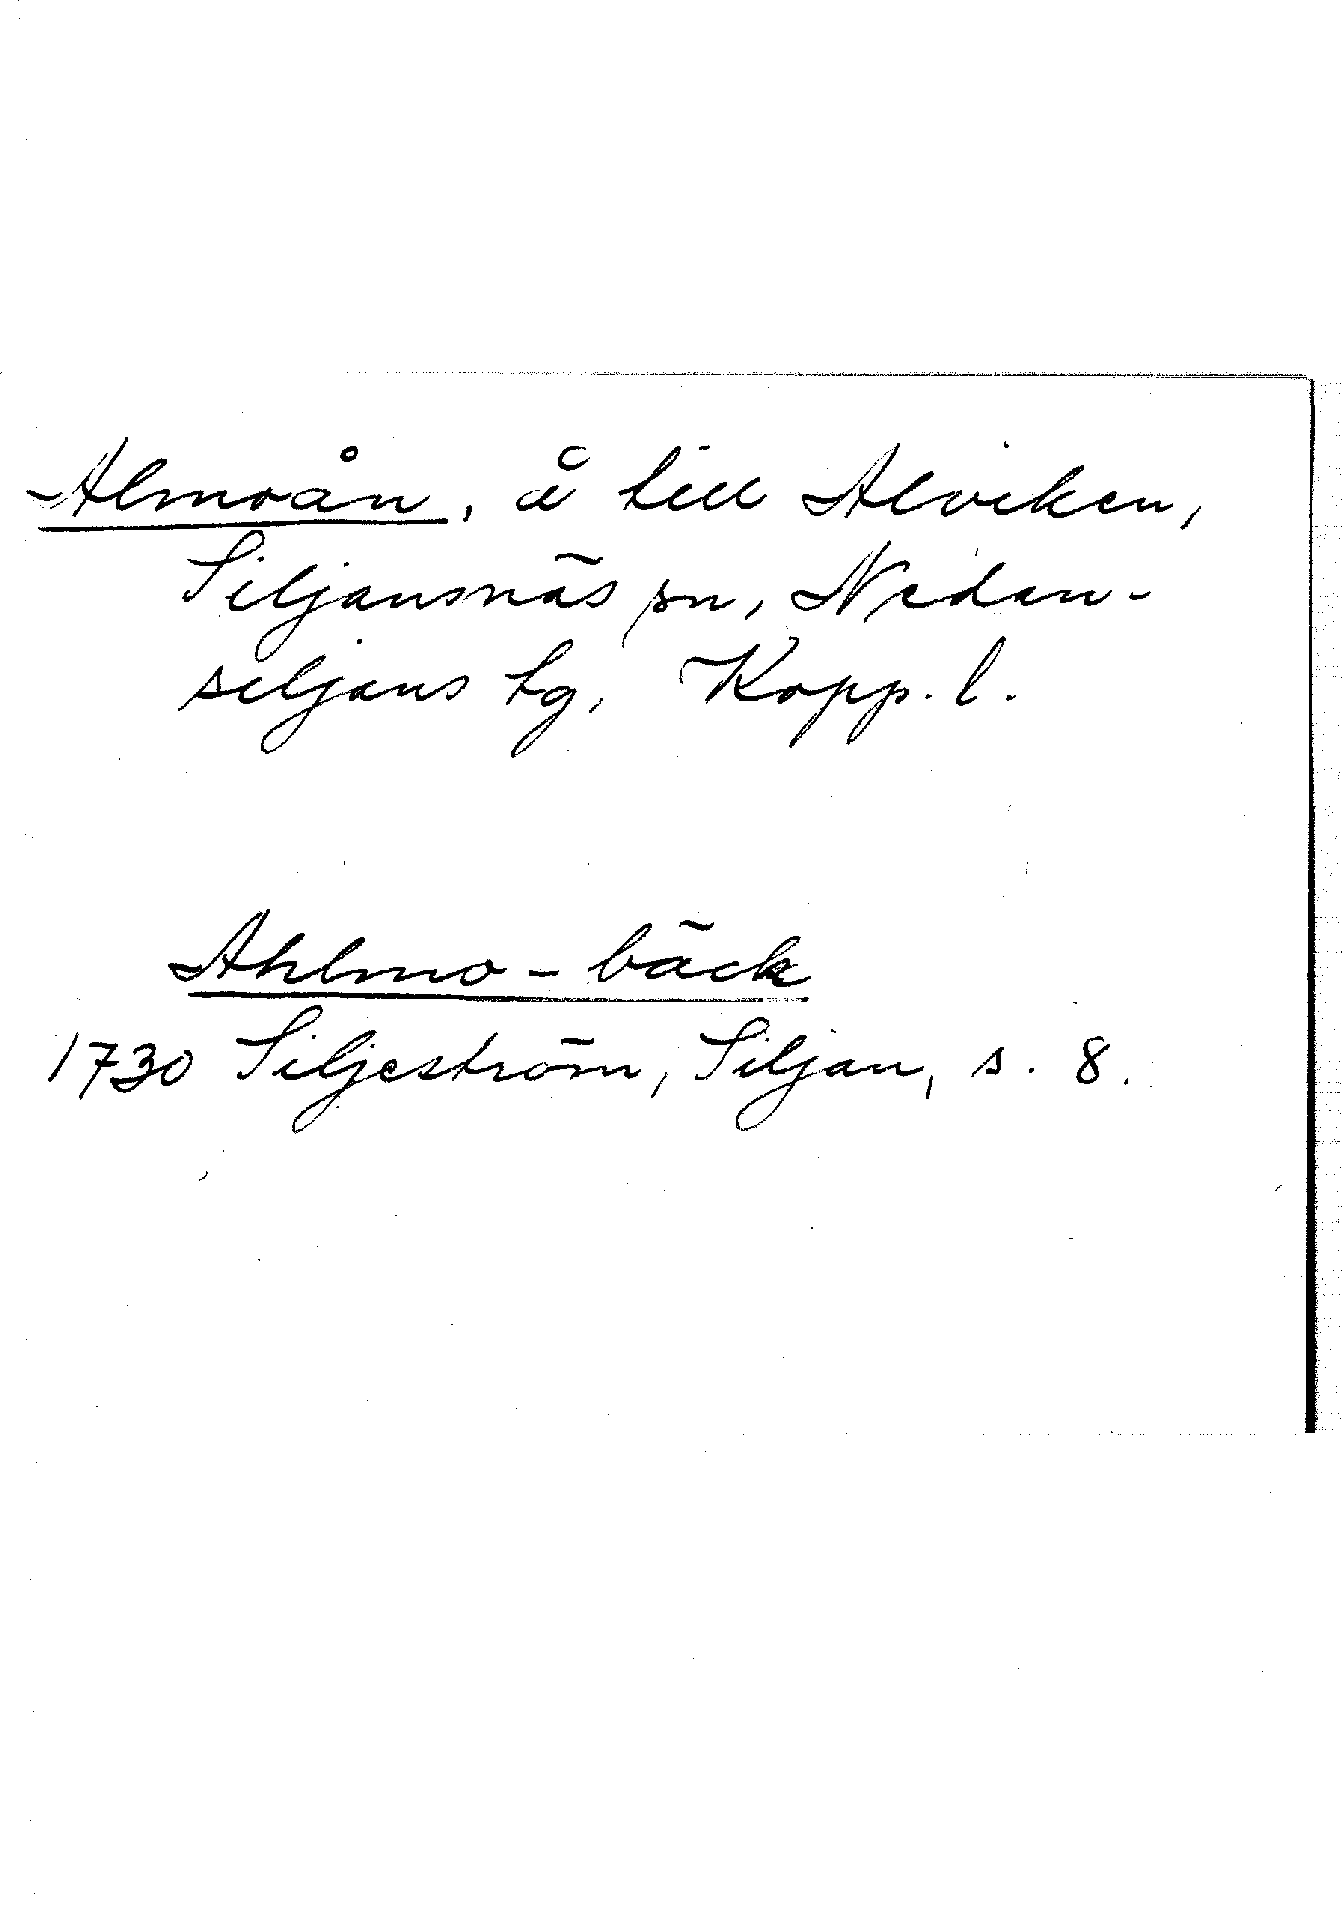 Almoån, å till Alviken,
Siljansnäs sn, Nedan-
siljans tg, Kopp. l.
Ahlmo-bäck
1730 Siljeström, Siljan, s. 8.